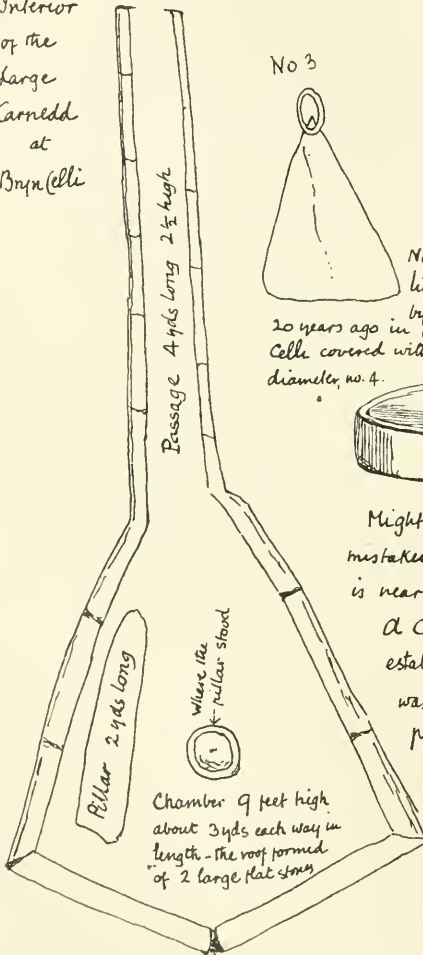 Interior
of the
Large
Carnedd
at
Bryn Celli
Passage 4 yds long 2½ high
No 3
20 years ago in
Celli covered with
diameter, no. 4.
Might
mistake
is near
a C
estal
was
Pillar 2 yds long
Where the
pillar stood
Chamber 9 feet high
about 3 yds each way in
length - the roof formed
of 2 large flat stones